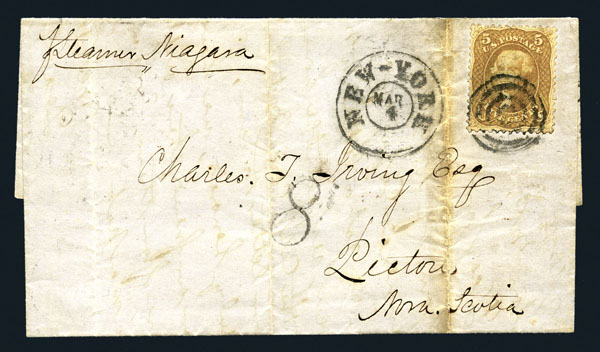 p Steamer Niagara
NEW-YORK
MAR
4
5 5
U.S. POSTAGE
Charles. T. Irving Esq
8
Pictou
Nova. Scotia